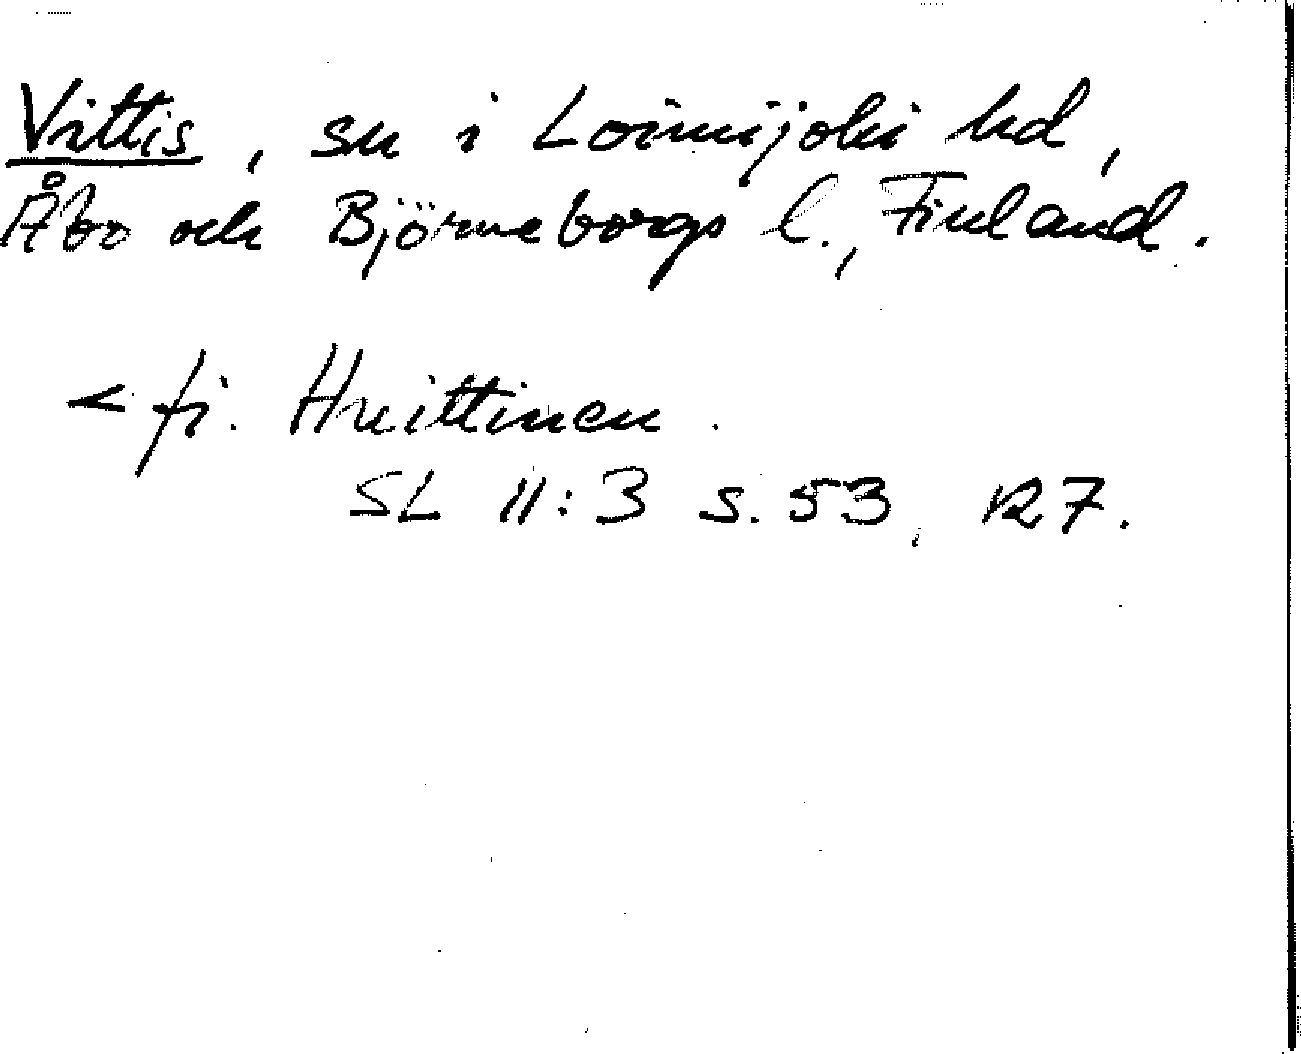 Vittis, sn i Loimijoki hd,
Åbo och Björneborgs l., Finland.
< fi. Huittinen.
SL 11:3 s. 53, R7.